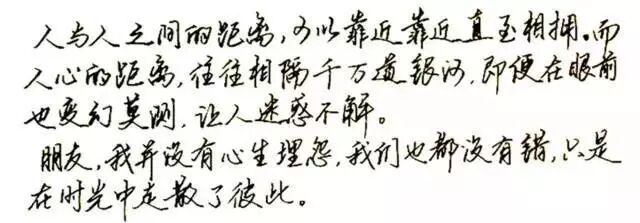 人与人之间的距离，可以靠近靠近直至相拥。而
人心的距离，往往相隔千万道银河，即便在眼前
也变幻莫测，让人迷惑不解。
朋友，我并没有心生埋怨，我们也都没有错，只是
在时光中走散了彼此。